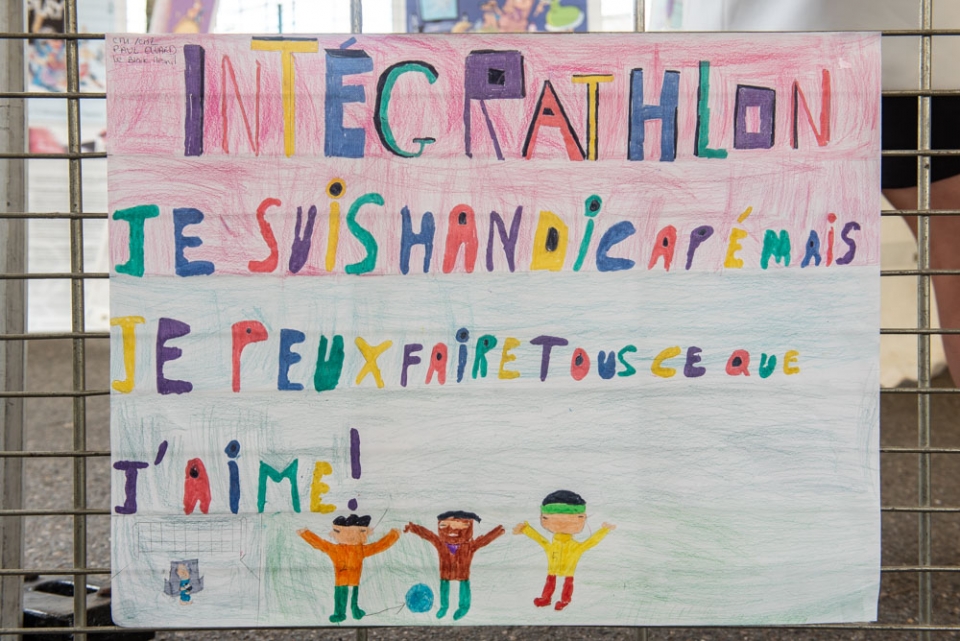 PAUL ELUARD
INTÉGRATHLON
JE SUIS HANDICAPÉ MAIS
JE PEUX FAIRE TOUS CE QUE
J'AIME!
PLAY